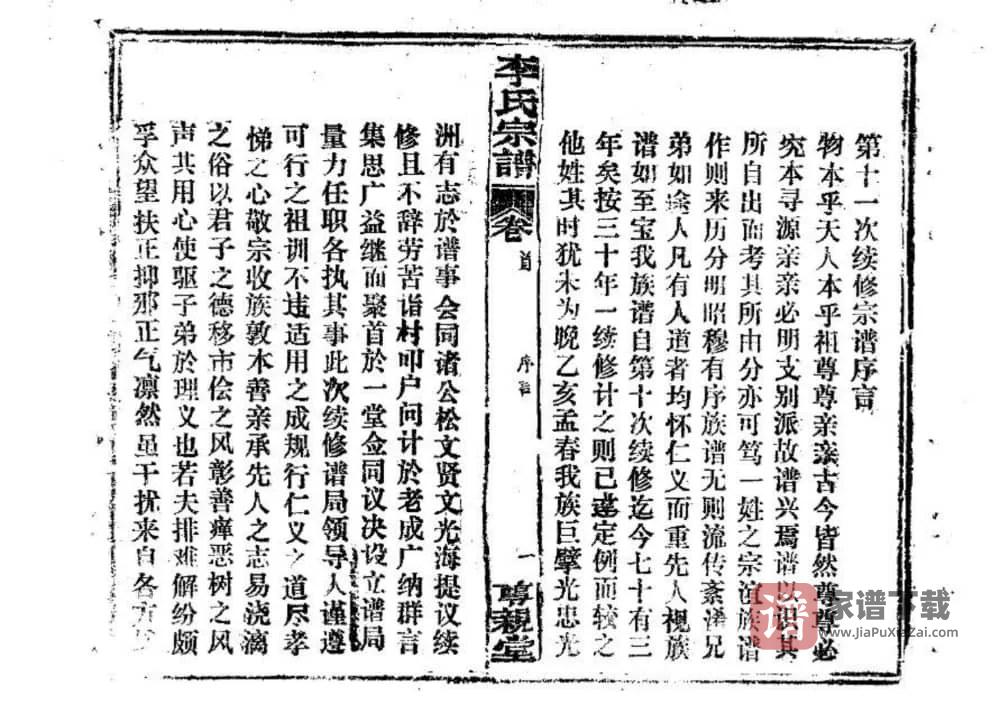 第十一次续修宗谱序言
物本乎天人本乎祖尊尊亲亲古今皆然尊尊必
究本寻源亲亲必明支别派故谱兴焉谱以识其
所自出而考其所由分亦可笃一姓之宗谊族谱
作则来历分明昭穆有序族谱无则流传紊淆兄
弟如途人凡有人道者均怀仁义而重先人视族
谱如至宝我族谱自第十次续修迄今七十有三
年矣按三十年一续修计之则已违定例而较之
他姓其时犹未为晚乙亥孟春我族巨擘光忠光
李氏宗谱
卷
首
序
一
尊亲堂
洲有志於谱事会同诸公松文贤文光海提议续
修且不辞劳苦诣村叩户问计於老成广纳群言
集思广益继而聚首於一堂佥同议决设立谱局
量力任职各执其事此次续修谱局领导人谨遵
可行之祖训不违适用之成规行仁义之道尽孝
悌之心敬宗收族敦本善亲承先人之志易浇漓
之俗以君子之德移市侩之风彰善瘅恶树之风
声共用心使驱子弟於理义也若夫排难解纷颇
孚众望扶正抑邪正气凛然虽干扰来自各方
谱 家谱下载
www.JiaPuXiaZai.com